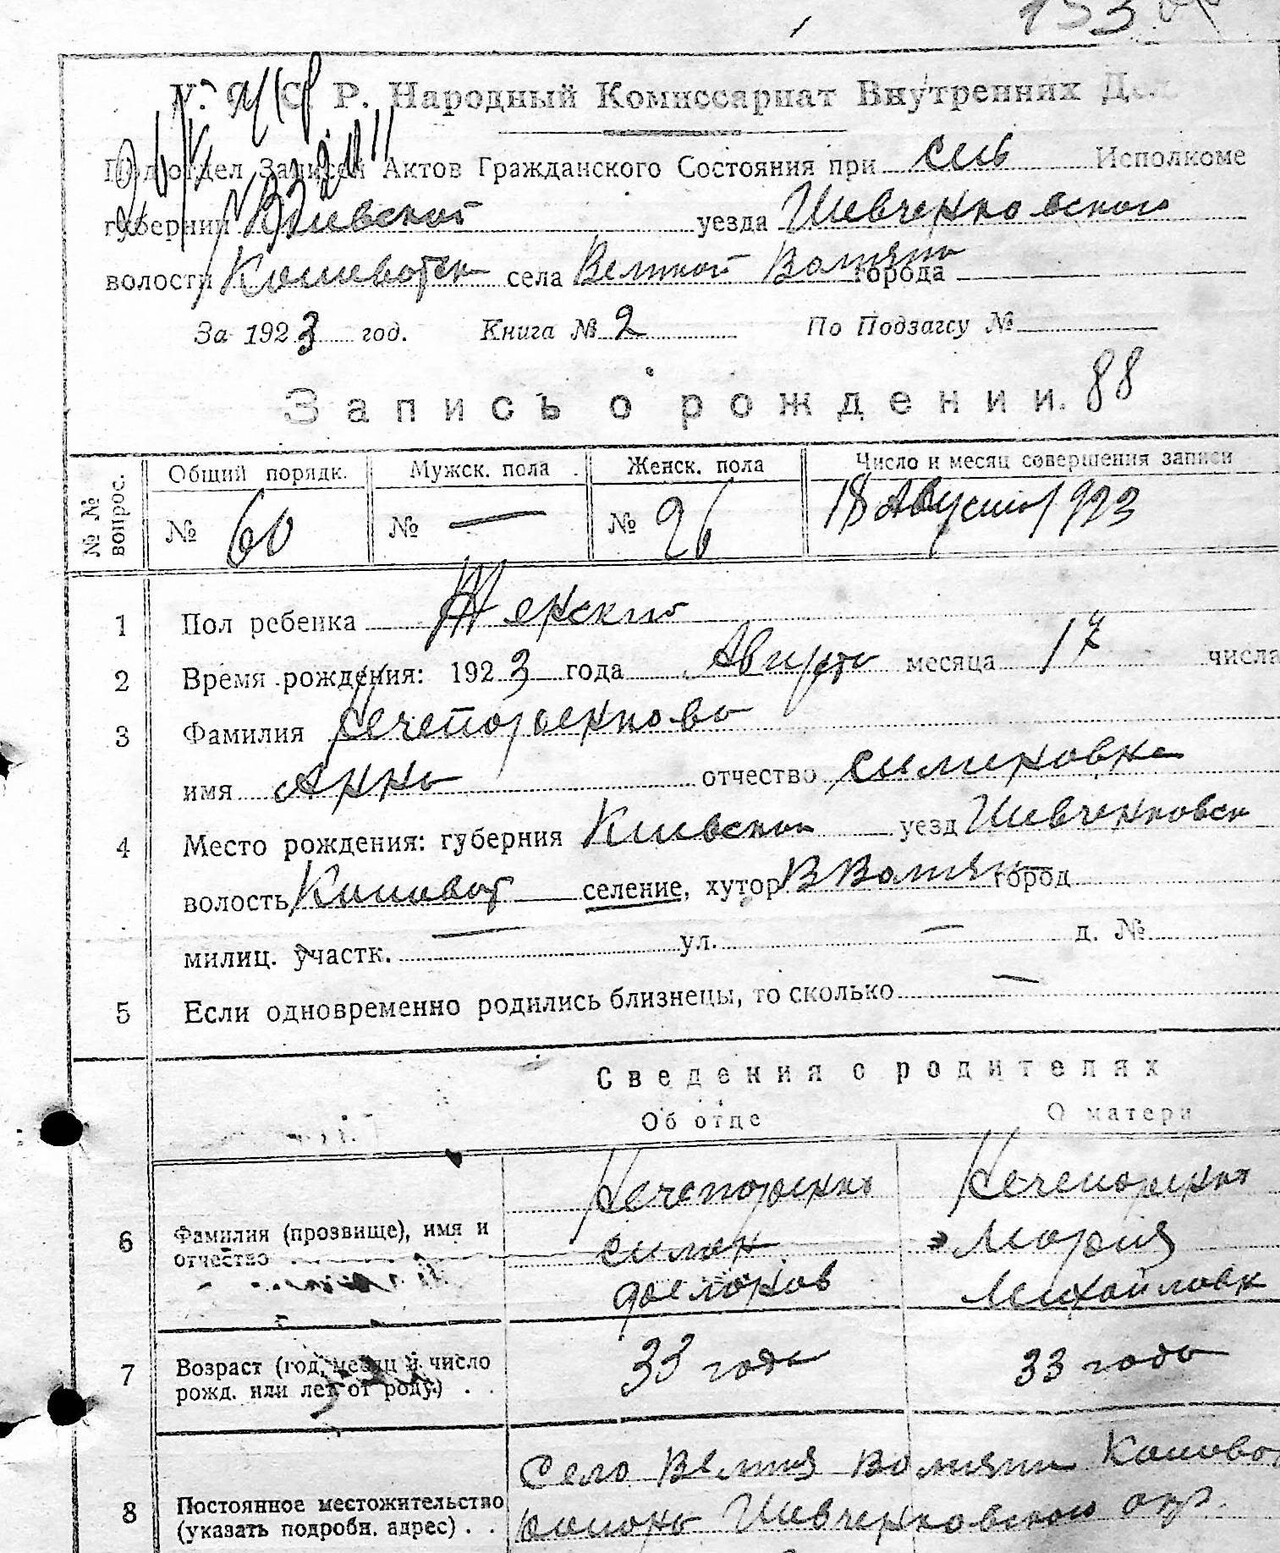 У. С. С. Р. Народный Комиссариат Внутренних Дел.
Подотдел Записей Актов Гражданского Состояния при Исполкоме
губернии Киевской уезда Шевченковского
волости села Великой города
За 1923 год. Книга № 2 По Подзагсу №
Запись о рождении. 88
№ № вопрос. Общий порядк. Мужск. пола Женск. пола Число и месяц совершения записи
№ 60 № — № 26 18 Августа 1923
1 Пол ребенка Женский
2 Время рождения: 1923 года Августа месяца 17 числа
3 Фамилия Нечепоренкова
имя Анна отчество
4 Место рождения: губерния Киевская уезд Шевченковск
волость селение, хутор город
милиц. участк. — ул. — д. №
5 Если одновременно родились близнецы, то сколько —
Сведения о родителях
Об отце О матери
6 Фамилия (прозвище), имя и отчество
Нечепоренко Нечепоренко
Симен Мария
Михайловн
7 Возраст (год, месяц и число рожд. или лет от роду.) . .
33 года 33 года
8 Постоянное местожительство (указать подробн. адрес) . .
Село
Шевченковского окр.